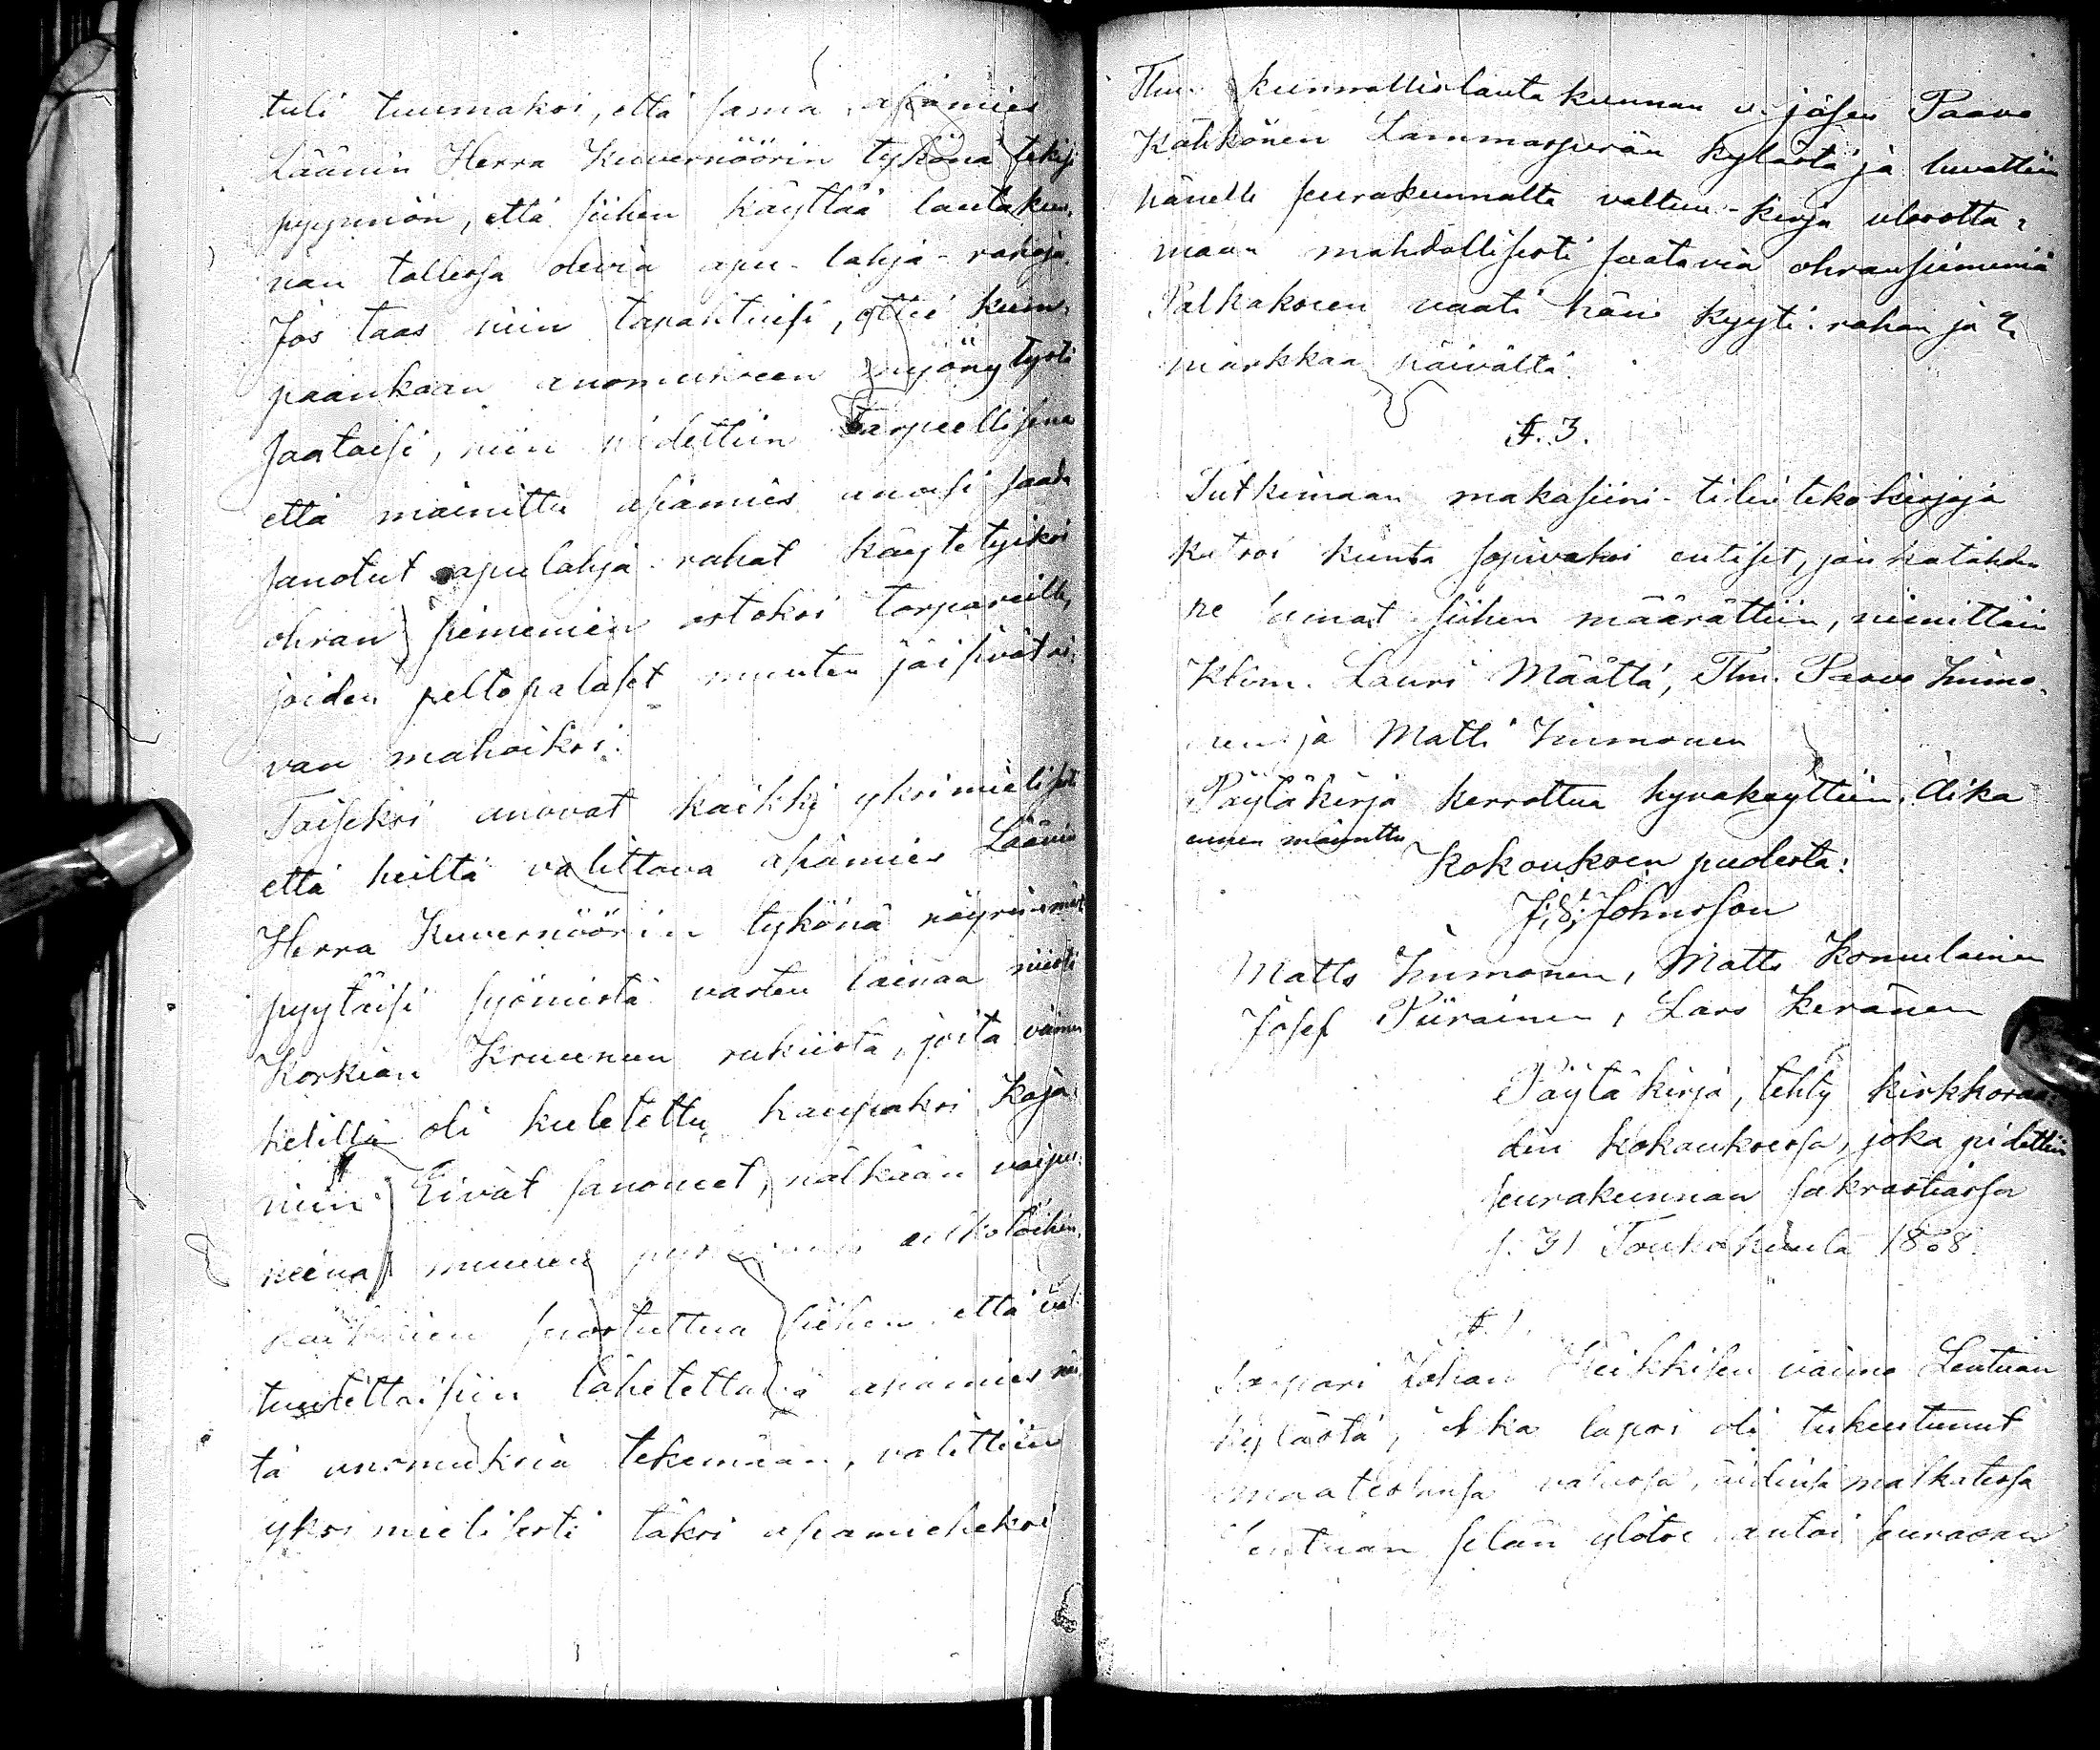 tuli tuumaksi, että sama asiamies
Läänin Herra Kuvernöörin tykönä tekisi
pyynnön, että siihen käyttää lautakun-
nan tallessa olevia apu-lahja-rahoja.
Jos taas niin tapahtuisi, ettei kum-
paankaan anomukseen myönytystä
saataisi, niin pidettiin tarpeellisena
että mainittu asiamies anoisi saada
sanotut apulahja-rahat käytetyiksi
ohran siemenien ostoksi torpareille,
joiden peltopalaset muuten jäisivät ai-
van mahoiksi.
Toiseksi anovat kaikki yksimielisesti
että heiltä valittava asiamies Läänin
Herra Kuvernöörin tykönä nöyrimmäst
pyytäisi syömistä varten lainaa niistä
Korkian Kruunun rukiista, joita viime
kelillä oli kuletettu kaupaksi Kaja-
niin. Eivät sanoneet, nälkään vaipu-
neina muuten
suostuttua siihen, että val-
tuutettaisiin lähetettävä asiamies näi-
tä anomuksia tekemään, valittiin
yksimielisesti täksi asiamieheksi
Tlm. Kunnallislautakunnan v. jäsen Paavo
Kähkönen Lammasperän kylästä ja luvattiin
hänelle seurakunnalta valtuu-kirja ulosotta-
maan mahdollisesti saatavia ohransiemeniä
Palkakseen vaati hän kyyti-rahan ja 2
markkaa päivältä.
§. 3.
Tutkimaan makasiini-tilintekokirjoja
katsoi kunta sopivaksi entiset, jonka tähden
ne samat siihen määrättiin, nimittäin
Klbm. Lauri Määttä, Tlm. Paavo Immo-
nen ja Matti Immonen
Pöytäkirja kerrottua hyväksyttiin. Aika
ennen mainittu
Kokouksen puolesta:
J. E. Johnsson
Matts Immonen, Matts Komulainen
Josef Piirainen, Lars Keränen
Pöytäkirja, tehty kirkkoraa-
din kokouksessa, joka pidettiin
seurakunnan sakrastiassa
s. 31 Toukokuula 1868.
§. 1.
Torpari Johan Heikkisen vaimo Lentuan
kylästä, jonka lapsi oli tukehtunut
maatessansa vatussa, äidinsä matkatessa
Lentuan selän ylötse antoi seuraavan